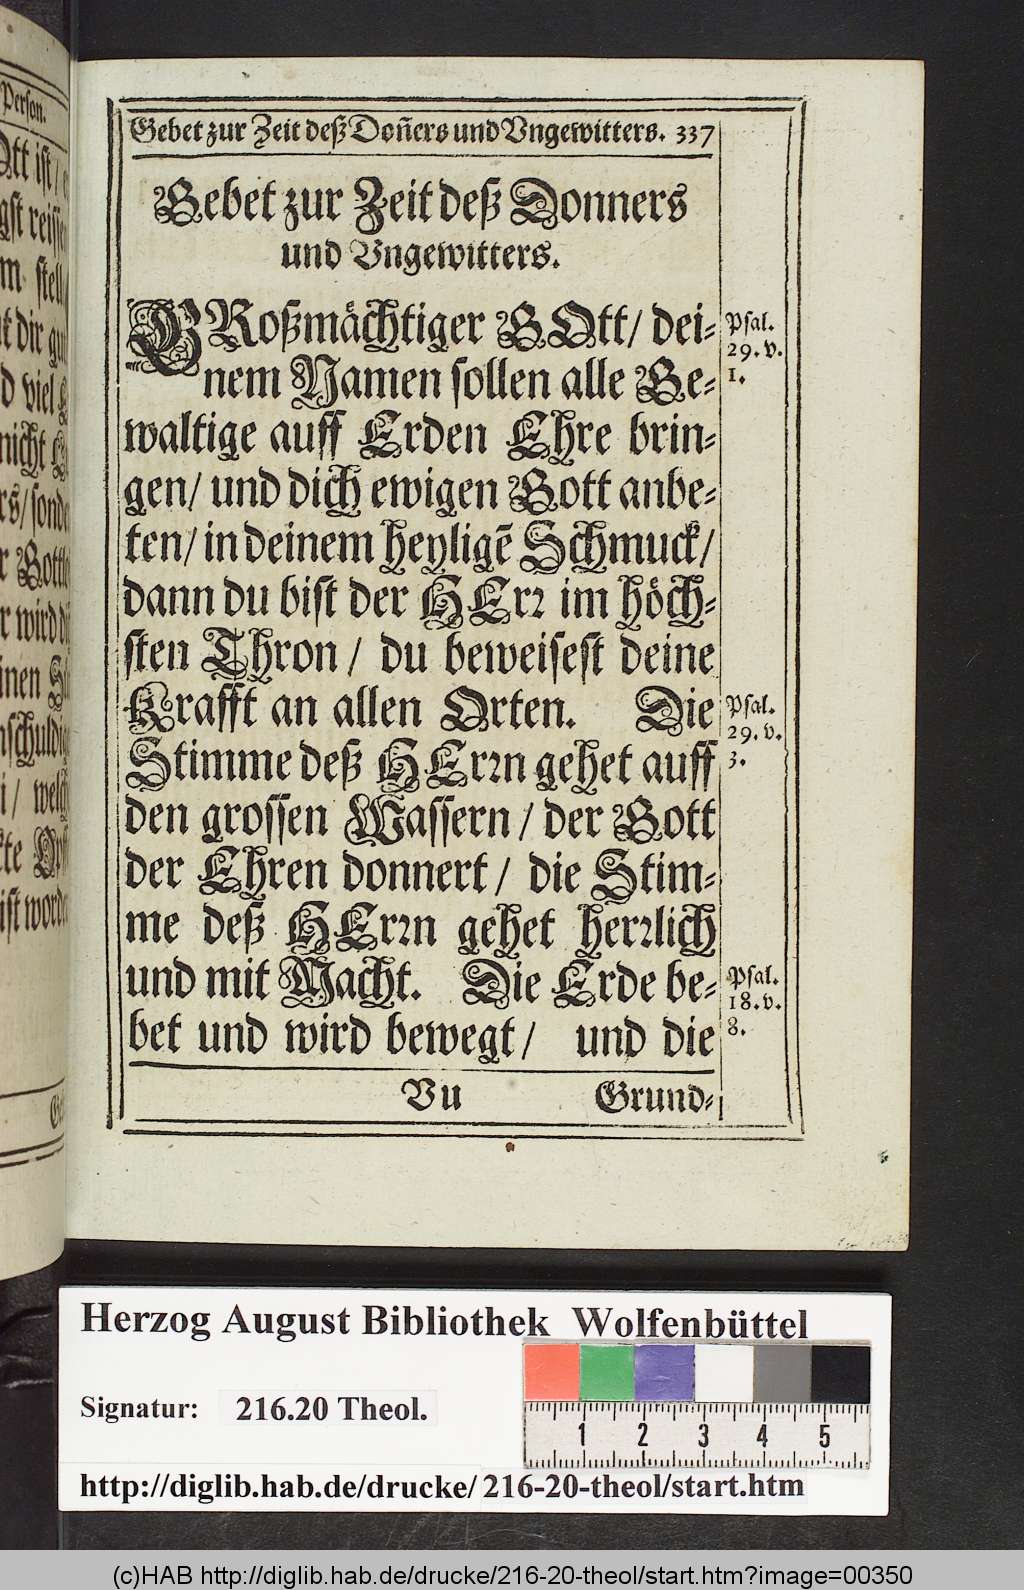 Person.
Gebet zur Zeit deß Doñers und Vngewitters. 337
Gebet zur Zeit deß Donners
und Vngewitters.
GRoßmächtiger GOtt/ dei-
nem Namen sollen alle Ge-
waltige auff Erden Ehre brin-
gen/ und dich ewigen Gott anbe-
ten/ in deinem heyligē Schmuck/
dann du bist der HErr im höch-
sten Thron/ du beweisest deine
Krafft an allen Orten. Die
Stimme deß HErrn gehet auff
den grossen Wassern/ der Gott
der Ehren donnert/ die Stim-
me deß HErrn gehet herrlich
und mit Macht. Die Erde be-
bet und wird bewegt/ und die
Vu Grund-
Psal.
29. v.
1.
Psal.
29. v.
3.
Psal.
18. v.
8.
Herzog August Bibliothek Wolfenbüttel
Signatur: 216.20 Theol.
1 2 3 4 5
http://diglib.hab.de/drucke/ 216-20-theol/start.htm
(c)HAB http://diglib.hab.de/drucke/216-20-theol/start.htm?image=00350